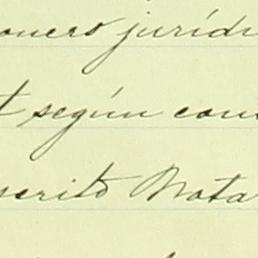 onero jurídi
t según con
scrito Nota